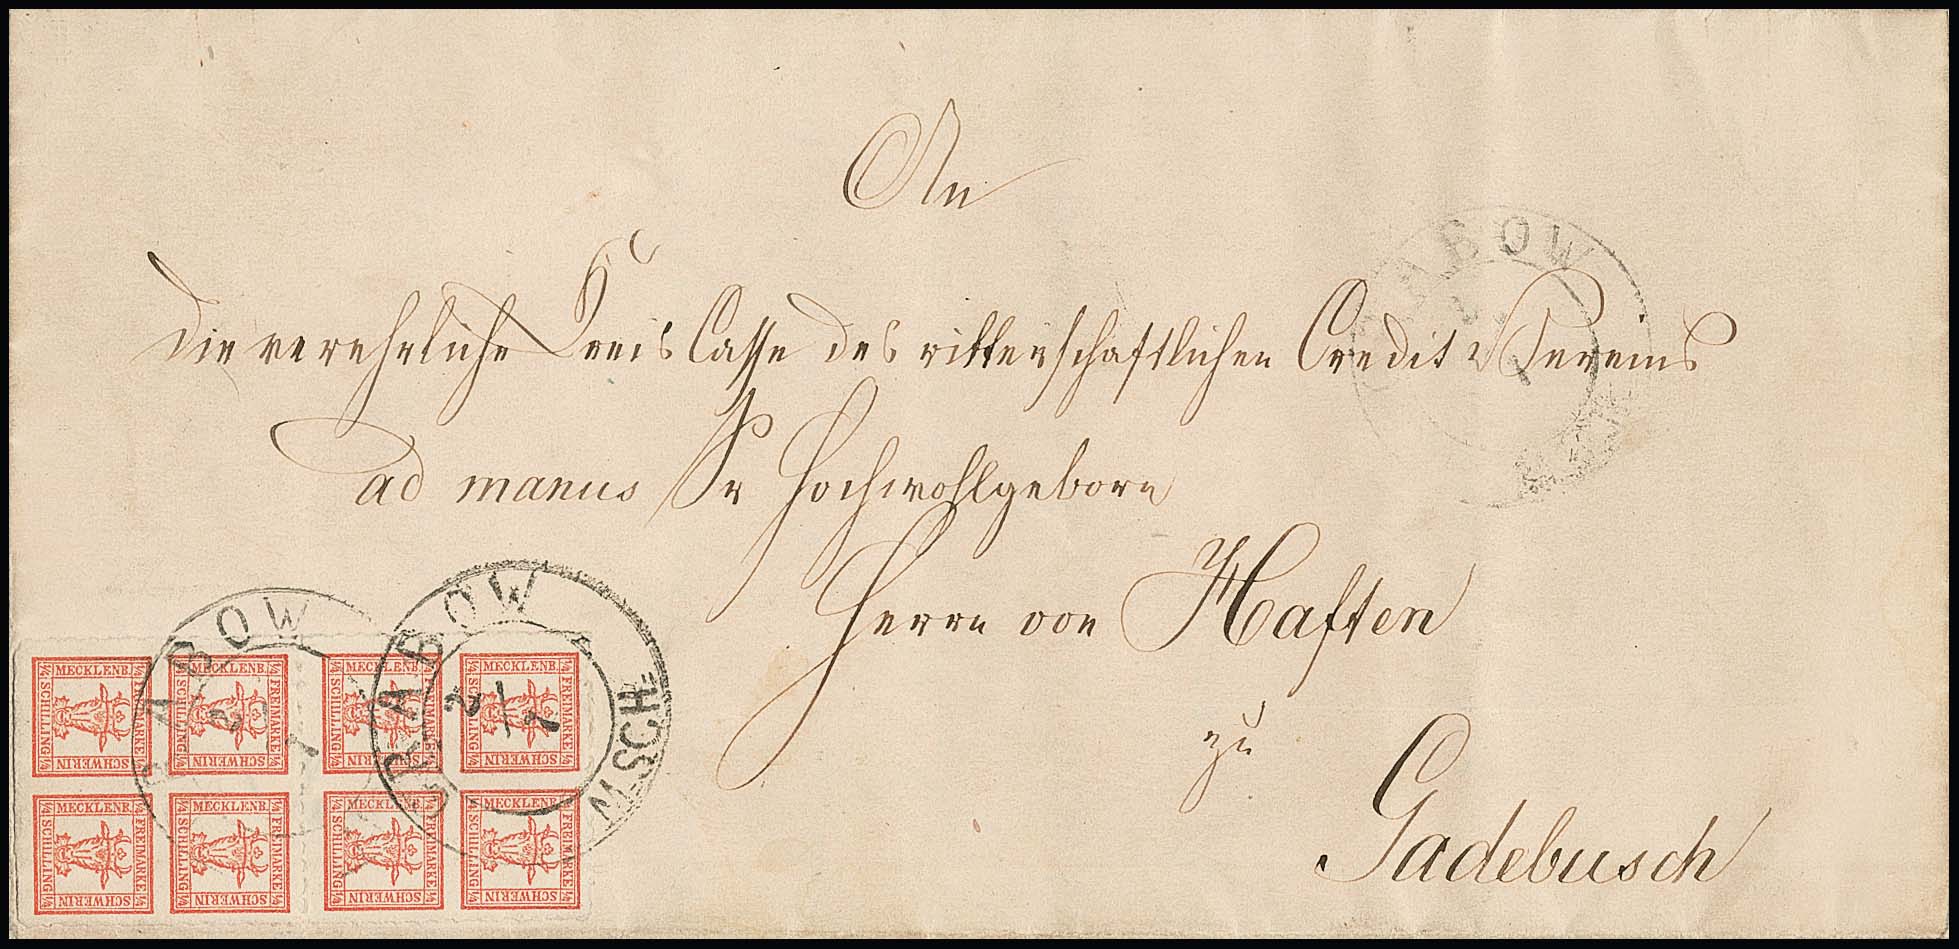 An
die verehrliche Kreis Casse des ritterschaftlichen Credit Vereins
ad manus Sr Hochwohlgeborn
Herrn von Haften
zu
Gadebusch
GRABOW M-SCH.
2/1
RABOW
2/1
RABOW
1
MECKLENB. FREIMARKE SCHWERIN SCHILLING 1/4 1/4 1/4 1/4
MECKLENB. FREIMARKE SCHWERIN SCHILLING 1/4 1/4 1/4 1/4
MECKLENB. FREIMARKE SCHWERIN SCHILLING 1/4 1/4 1/4 1/4
MECKLENB. FREIMARKE SCHWERIN SCHILLING 1/4 1/4 1/4 1/4
MECKLENB. FREIMARKE SCHWERIN SCHILLING 1/4 1/4 1/4 1/4
MECKLENB. FREIMARKE SCHWERIN SCHILLING 1/4 1/4 1/4 1/4
MECKLENB. FREIMARKE SCHWERIN SCHILLING 1/4 1/4 1/4 1/4
MECKLENB. FREIMARKE SCHWERIN SCHILLING 1/4 1/4 1/4 1/4